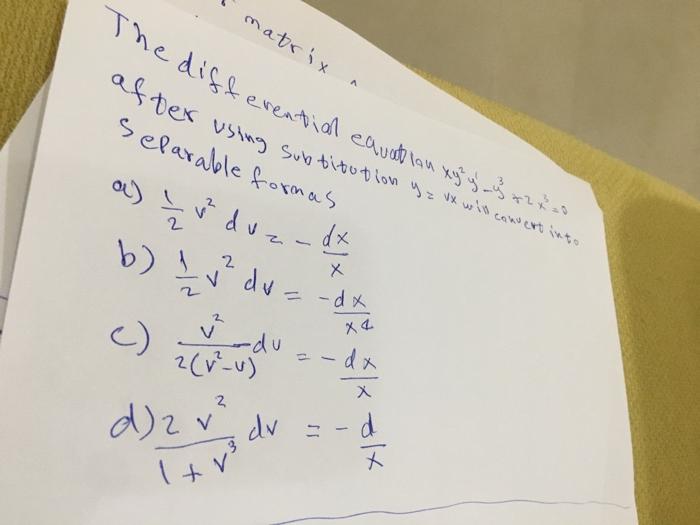 matrix
The differential equation xy²y' - y³ + 2x³ = 0
after using subtitution y = vx will convert into
separable formas
a) 1/2 v² dv = - dx/x
b) 1/2 v² dv = -dx/x4
c) v²/2(v²-v) dv = - dx/x
d) 2v²/1+v³ dv = - d/x